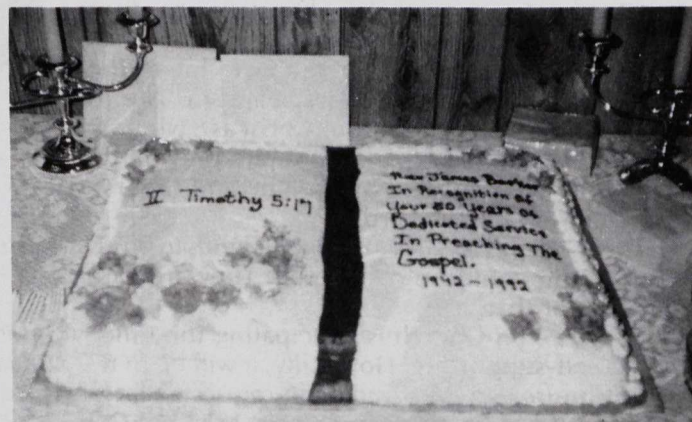 II Timothy 5:17
Rev James
In Recognition of
Your 50 Years of
Dedicated Service
In Preaching The
Gospel.
1942 - 1992